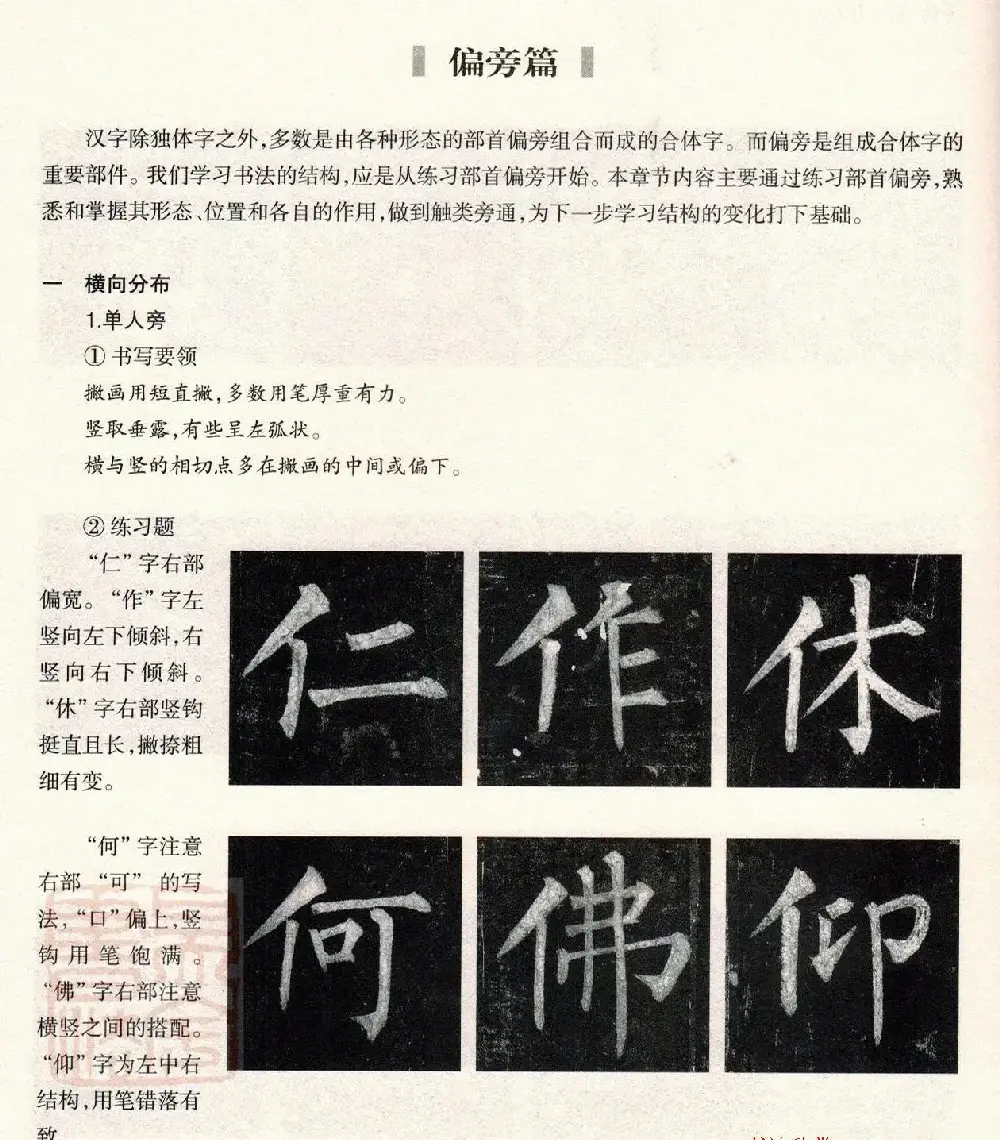 偏旁篇
汉字除独体字之外,多数是由各种形态的部首偏旁组合而成的合体字。而偏旁是组成合体字的
重要部件。我们学习书法的结构,应是从练习部首偏旁开始。本章节内容主要通过练习部首偏旁,熟
悉和掌握其形态、位置和各自的作用,做到触类旁通,为下一步学习结构的变化打下基础。
一 横向分布
1.单人旁
① 书写要领
撇画用短直撇,多数用笔厚重有力。
竖取垂露,有些呈左弧状。
横与竖的相切点多在撇画的中间或偏下。
② 练习题
“仁”字右部
偏宽。“作”字左
竖向左下倾斜,右
竖向右下倾斜。
“休”字右部竖钩
挺直且长,撇捺粗
细有变。
仁 作 休
“何”字注意
右部“可”的写
法,“口”偏上,竖
钩用笔饱满。
“佛”字右部注意
横竖之间的搭配。
“仰”字为左中右
结构,用笔错落有
致
何 佛 仰